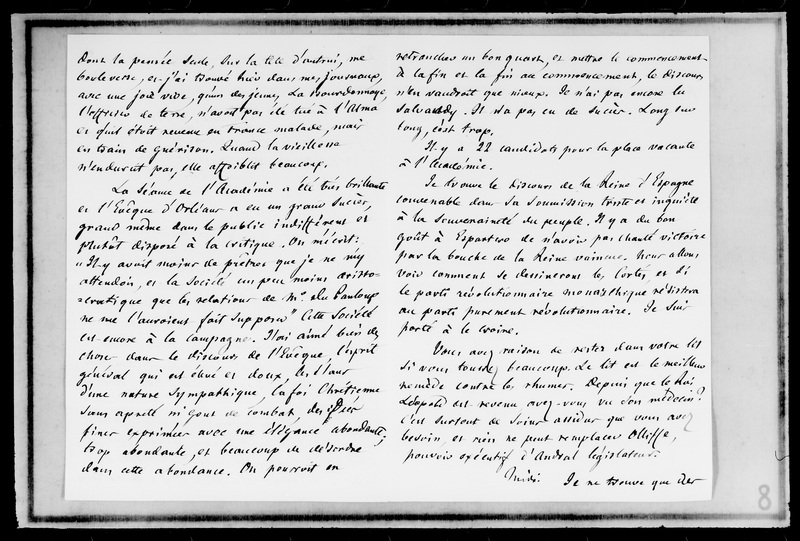 dont la pensée seule, sur la tête d'autrui, me
bouleverse, et j'ai trouvé hier dans mes journaux,
avec une joie vive, qu'un des jeunes La Bourdonnaye,
l'officier de terre, n'avait pas été tué à l'Alma
et qu'il étoit revenu en France malade, mais
en train de guérison. Quand la vieillesse
n'endurcit pas, elle affoiblit beaucoup.
La Séance de l'Académie a été très brillante
et l'Evêque d'Orléans a eu un grand succès,
grand même dans le public indifférent et
plutôt disposé à la critique. On m'écrit :
"Il y avait moins de prêtres que je ne m'y
attendois, et la société un peu moins aristo-
=cratique que les relations de Mr. Du Panloup
ne me l'auroient fait supposer" Cette Société
est encore à la campagne. J'ai aimé bien des
choses dans le discours de l'Evêque, l'esprit
général qui est élevé et doux, les élans
d'une nature sympathique, la foi Chrétienne
sans apreté ni gout de combat, des idées
fines exprimées avec une élégance abondante,
trop abondante, et beaucoup de désordre
dans cette abondance. On pourroit en
retrancher un bon quart, et mettre le commencement
à la fin et la fin au commencement, le discours
n'en vaudroit que mieux. Je n'ai pas encore lu
Salvandy. Il n'a pas eu de succès. Long sur
long, c'est trop.
Il y a 22 candidats pour la place vacante
à l'Académie.
Je trouve le discours de la Reine d'Espagne
convenable dans sa soumission triste et inquiète
à la souveraineté du peuple. Il y a du bon
goût à Espartero de n'avoir pas chanté victoire
par la bouche de la Reine vaincue. Nous allons
voir comment se dessineront les Cortès, et si
le parti révolutionnaire monarchique résistera
au parti purement révolutionnaire. Je suis
porté à le croire.
Vous avez raison de rester dans votre lit
si vous toussez beaucoup. Le lit est le meilleur
remède contre les rhumes. Depuis que le Roi
Léopold est revenu avez-vous vu son médecin ?
C'est surtout de soins assidus que vous avez
besoin, et rien ne peut remplacer Olliffe,
pouvoir exécutif d'Andral législateur.
Midi. Je ne trouve que des
8